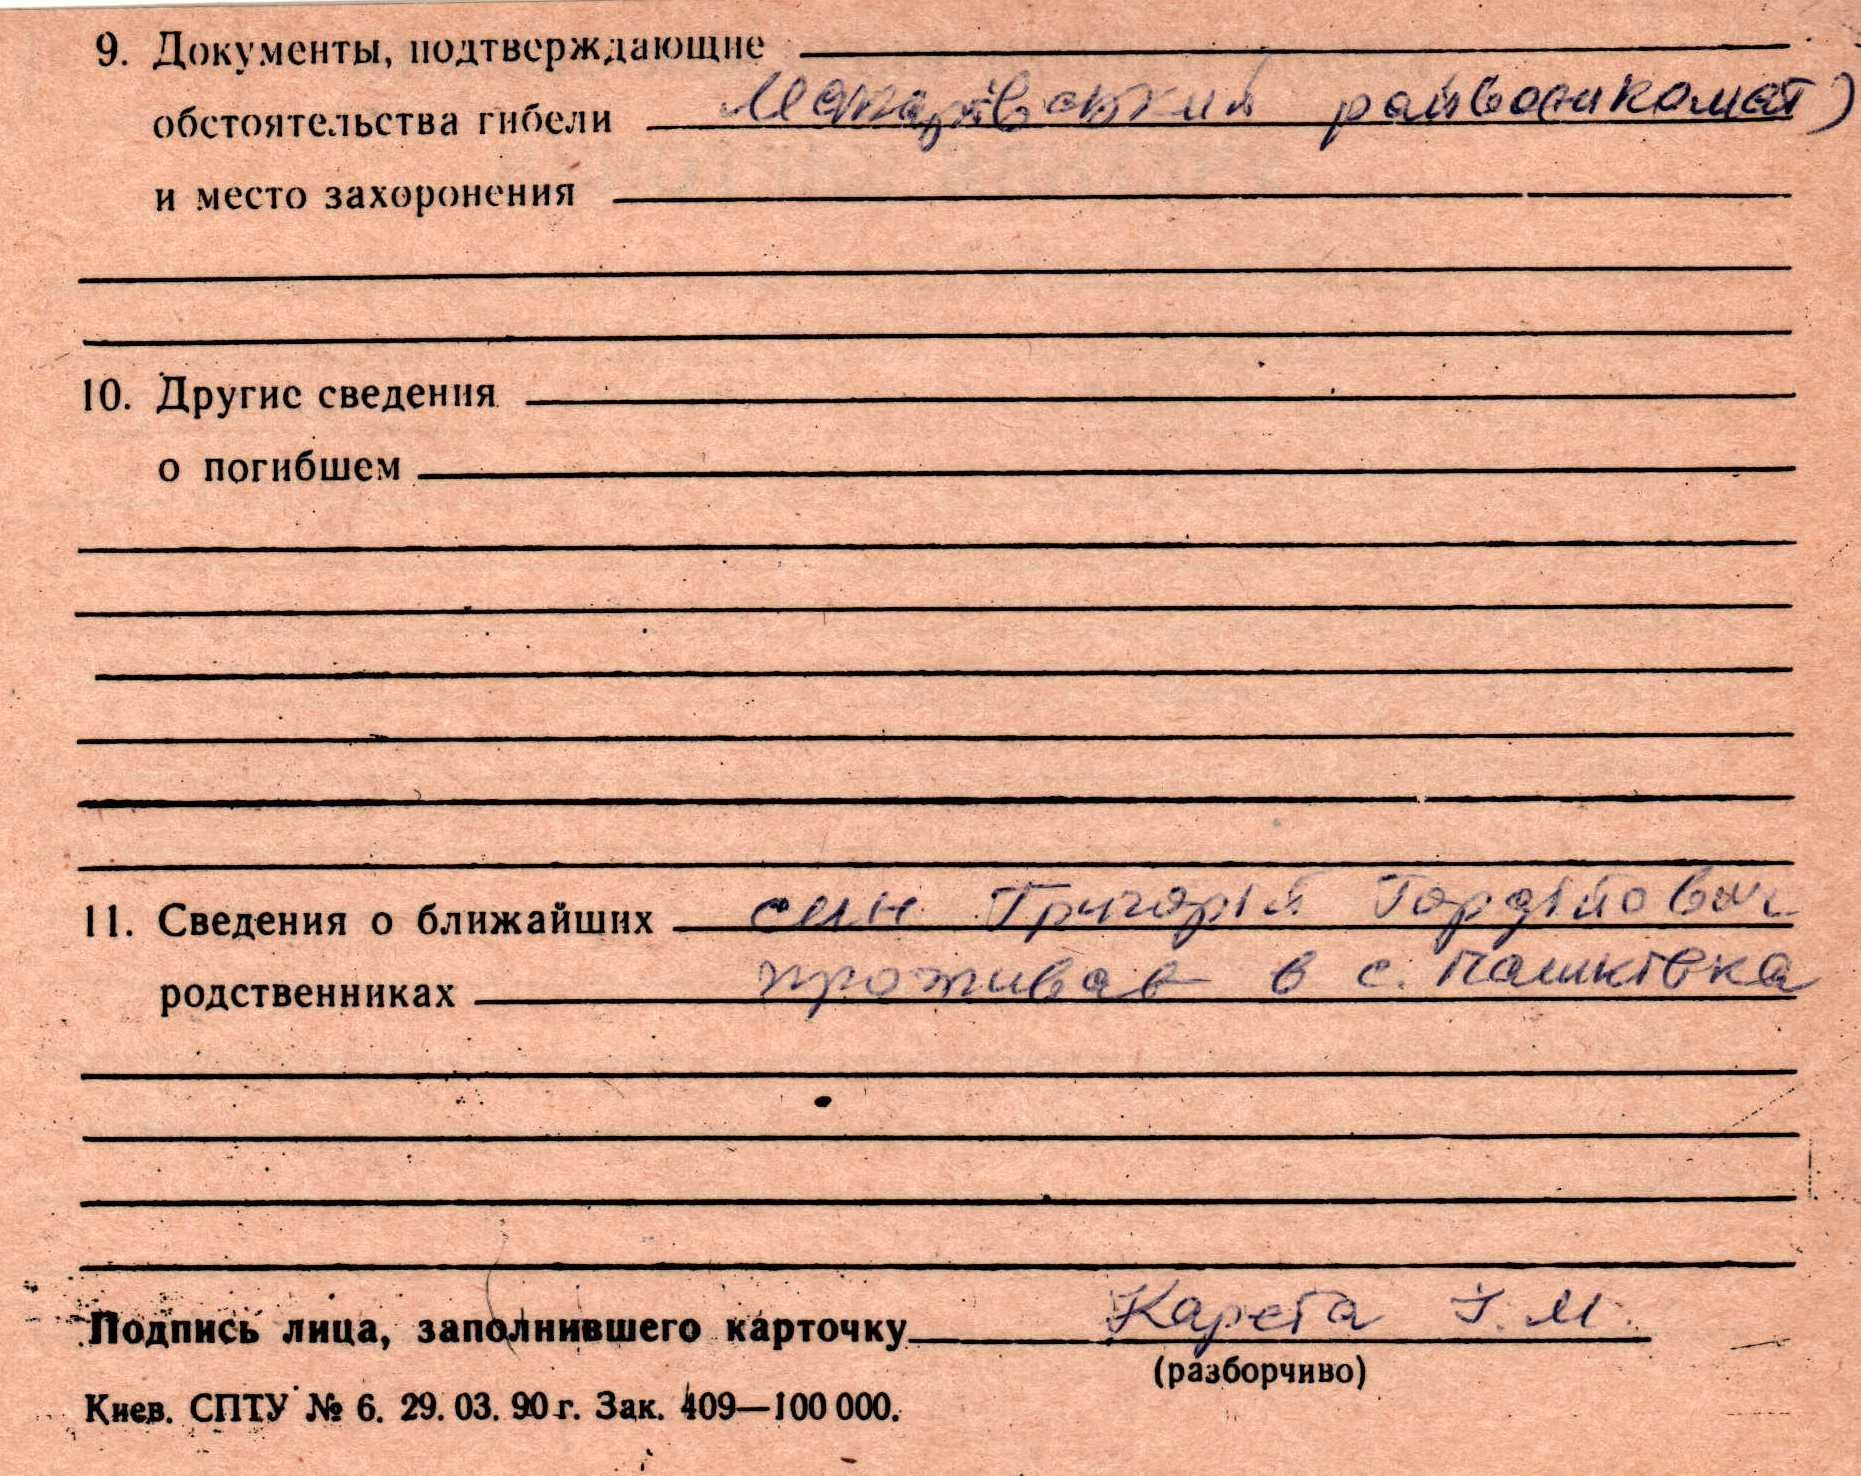 9. Документы, подтверждающие
обстоятельства гибели Макарівський райвоєнкомат)
и место захоронения
10. Другие сведения
о погибшем
11. Сведения о ближайших син Григорій Гордійович
родственниках проживав в с. Пашківка
Подпись лица, заполнившего карточку Карета І. М.
(разборчиво)
Киев. СПТУ № 6. 29. 03. 90 г. Зак. 409—100 000.